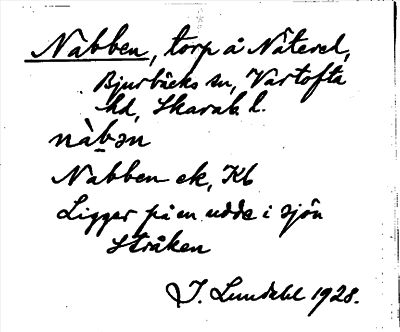 Nabben, torp å Nätered,
Bjurbäcks sn, Vartofta
hd, Skarab. l.
nàb̠ən
Nabben ek, Kb
Ligger på en udde i sjön
Stråken
J. Lundahl 1928.